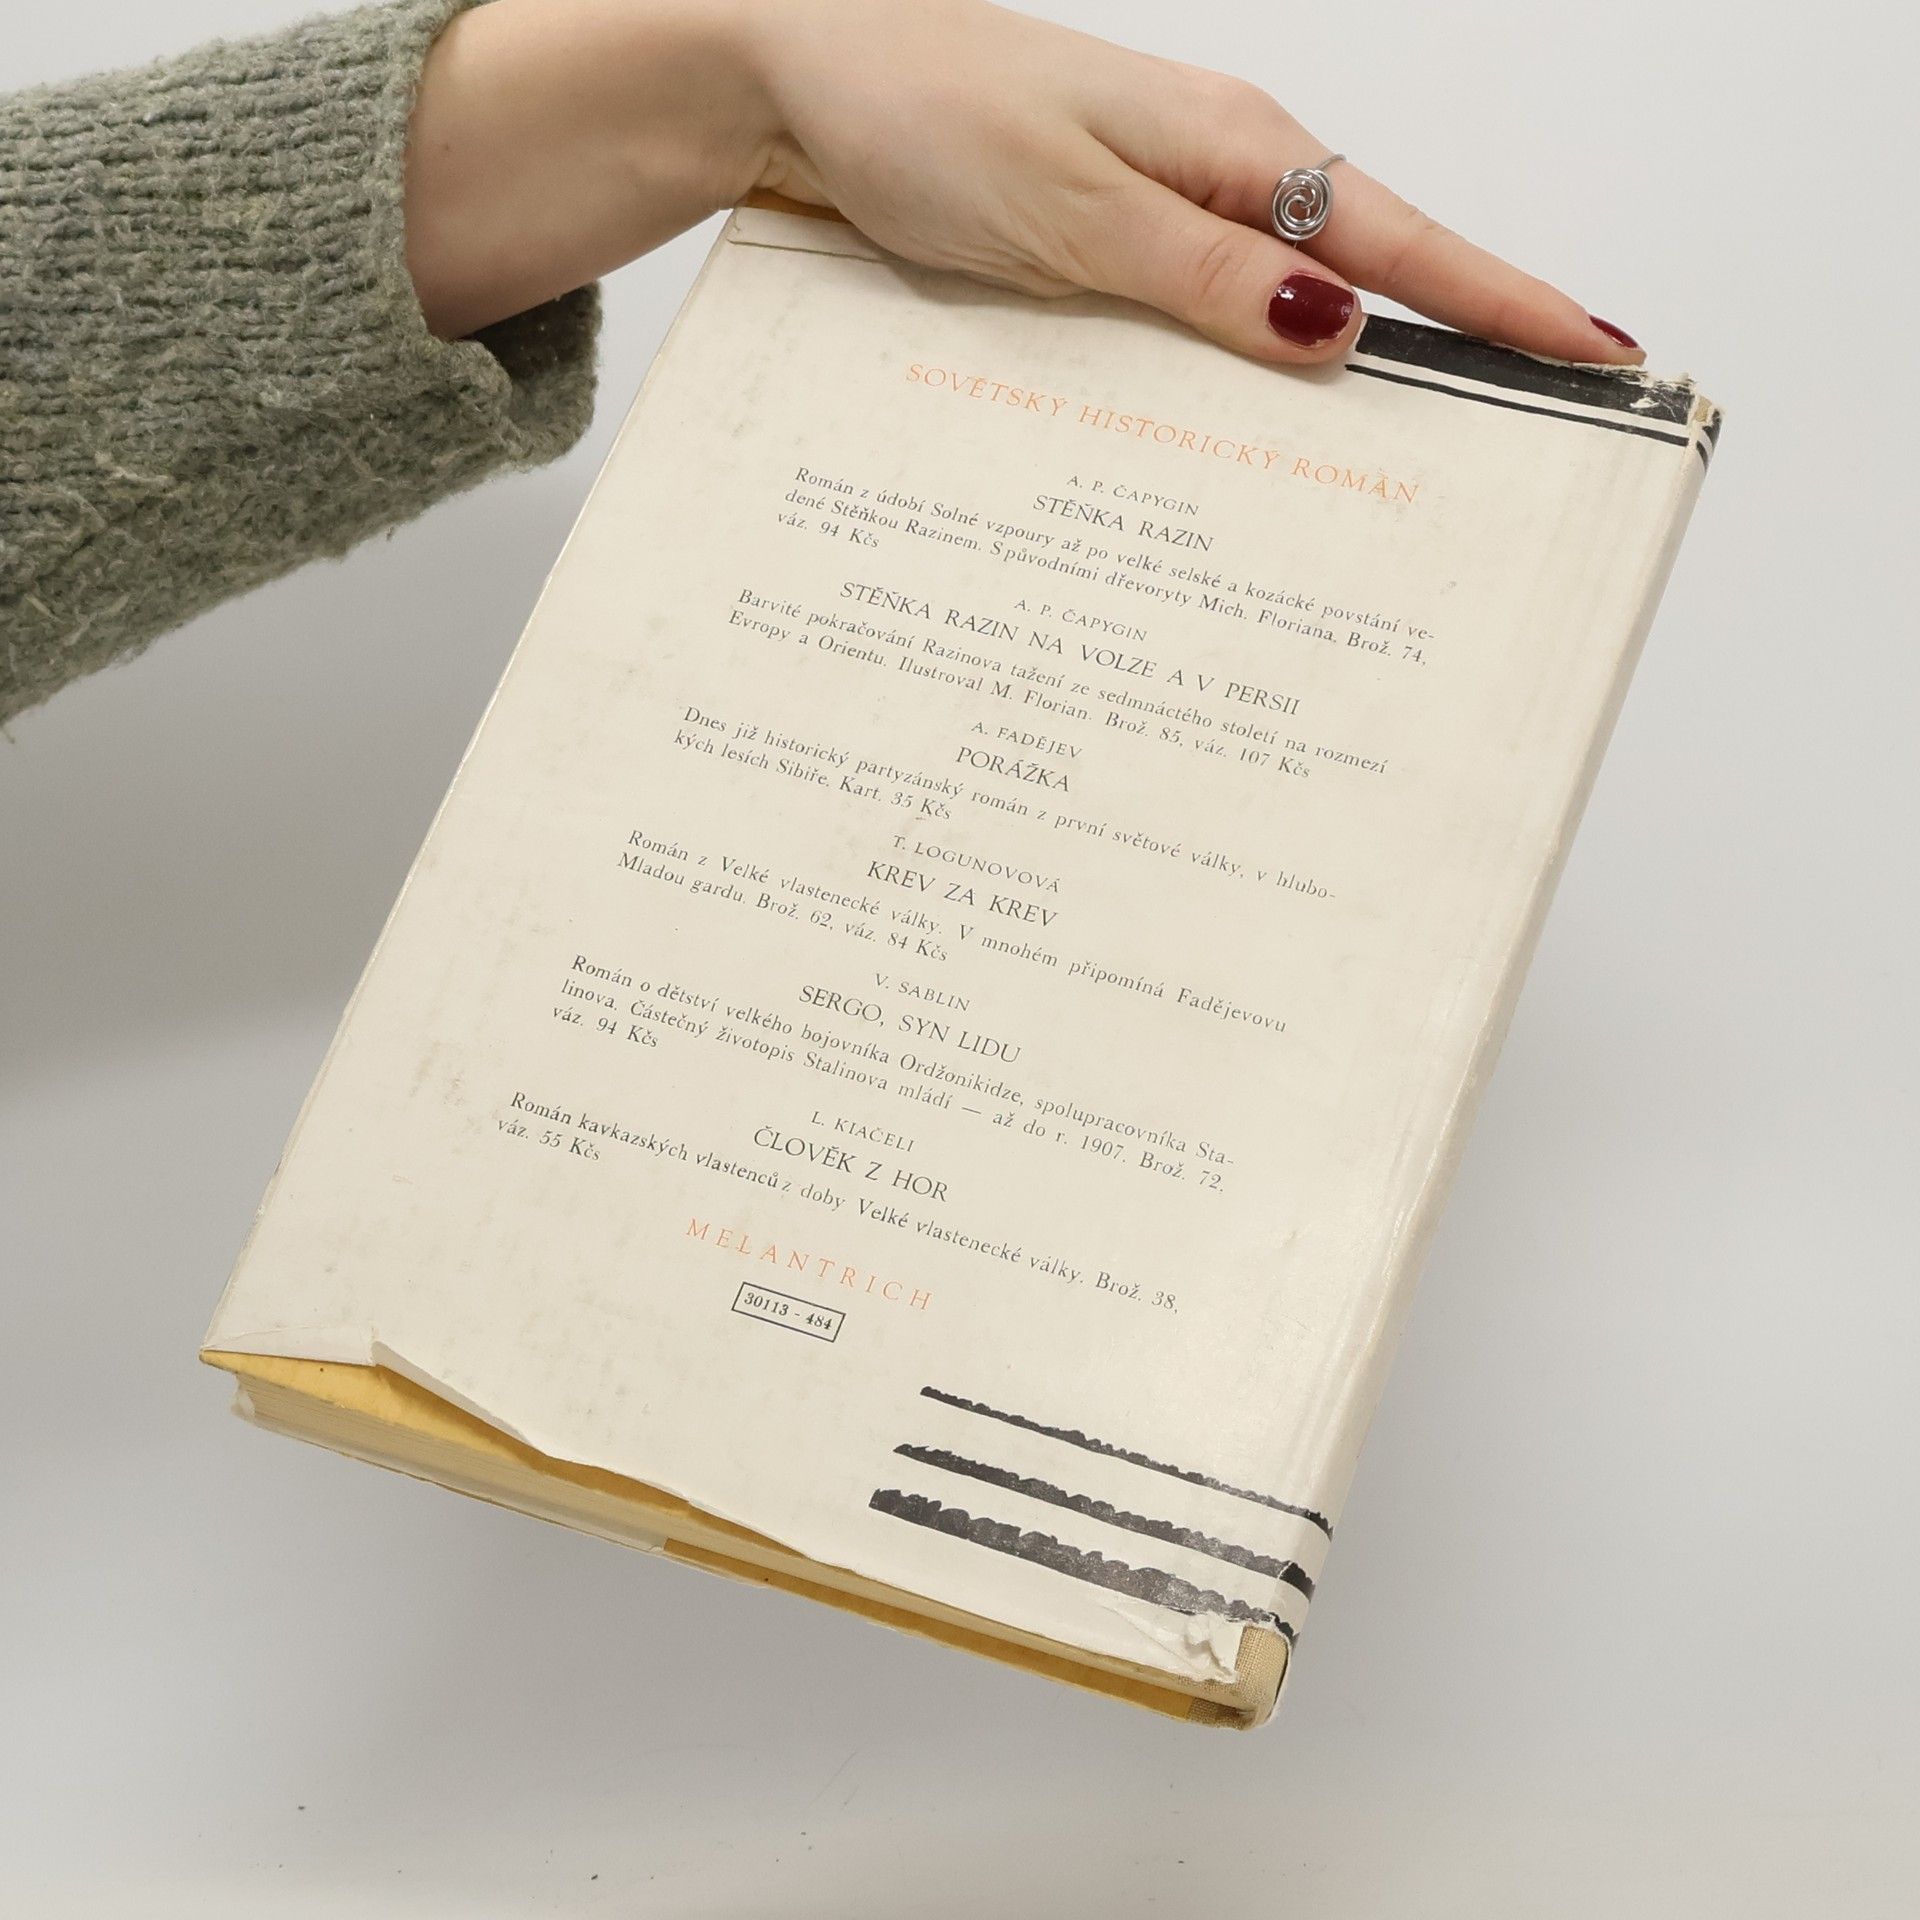 SOVĚTSKÝ HISTORICKÝ ROMÁN
A. P. ČAPYGIN
STĚŇKA RAZIN
Román z údobí Solné vzpoury až po velké selské a kozácké povstání ve-
dené Stěňkou Razinem. S původními dřevoryty Mich. Floriana. Brož. 74,
váz. 94 Kčs
A. P. ČAPYGIN
STĚŇKA RAZIN NA VOLZE A V PERSII
Barvité pokračování Razinova tažení ze sedmnáctého století na rozmezí
Evropy a Orientu. Ilustroval M. Florian. Brož. 85, váz. 107 Kčs
A. FADĚJEV
PORÁŽKA
Dnes již historický partyzánský román z první světové války, v hlubo-
kých lesích Sibiře. Kart. 35 Kčs
T. LOGUNOVOVÁ
KREV ZA KREV
Román z Velké vlastenecké války. V mnohém připomíná Fadějevovu
Mladou gardu. Brož. 62, váz. 84 Kčs
V. SABLIN
SERGO, SYN LIDU
Román o dětství velkého bojovníka Ordžonikidze, spolupracovníka Sta-
linova. Částečný životopis Stalinova mládí — až do r. 1907. Brož. 72,
váz. 94 Kčs
L. KIAČELI
ČLOVĚK Z HOR
Román kavkazských vlastenců z doby Velké vlastenecké války. Brož. 38,
váz. 55 Kčs
MELANTRICH
30113 - 484